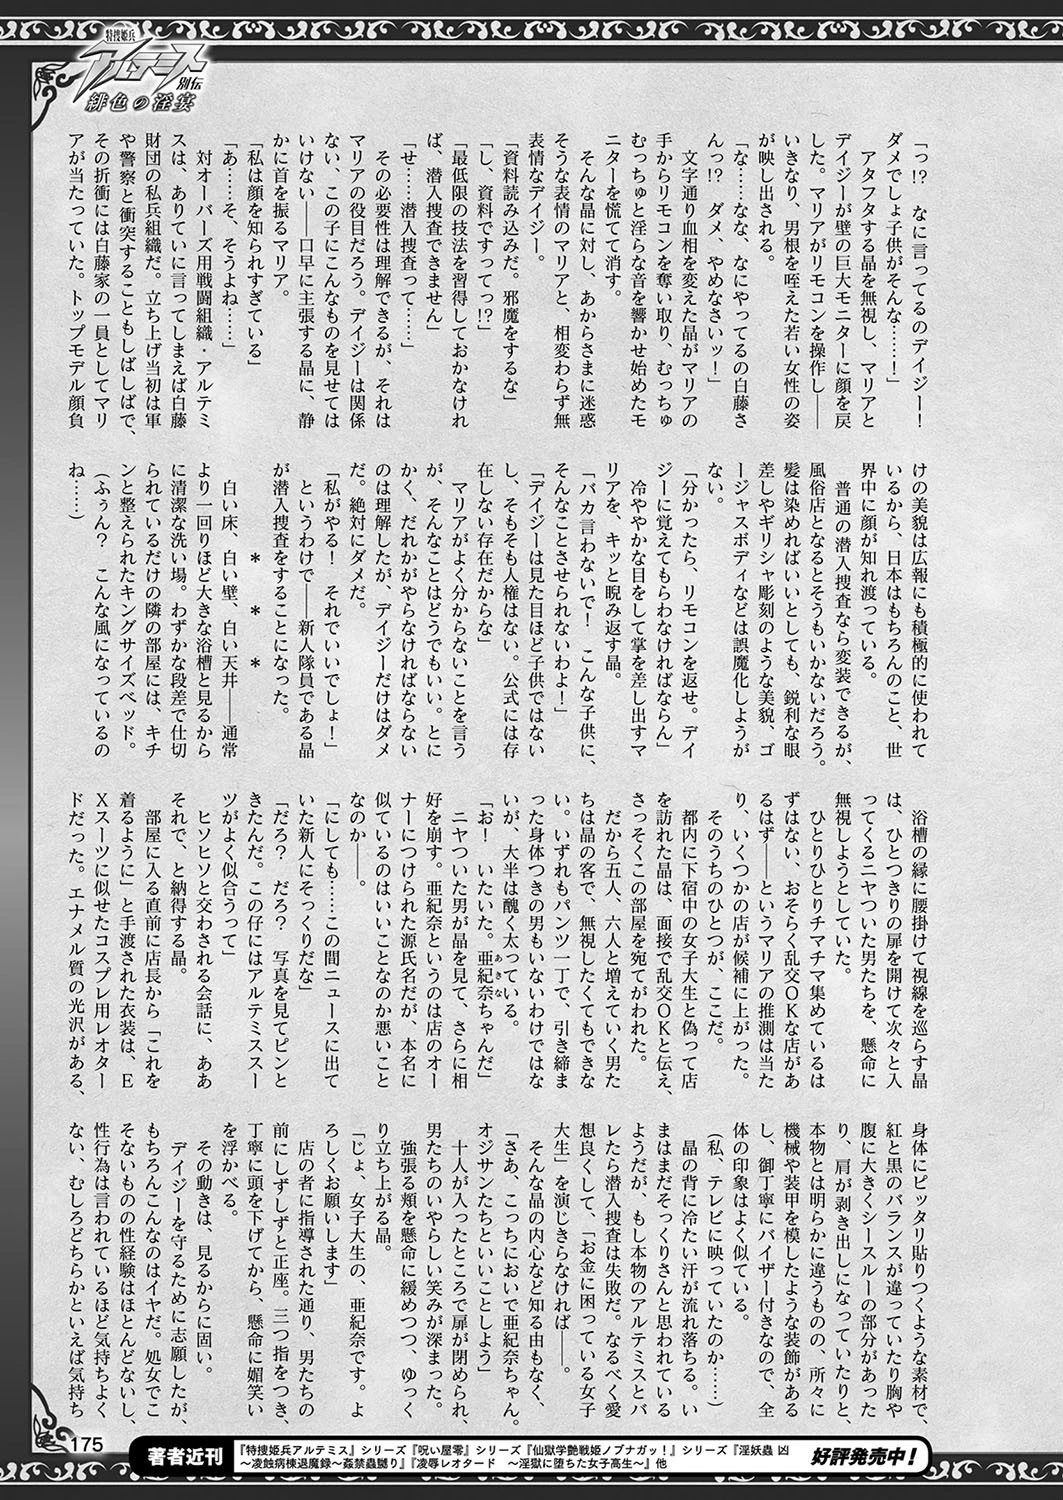 特捜姫兵
アルテミス
別伝
緋色の淫宴
「っ!?　なに言ってるのデイジー！
ダメでしょ子供がそんな……！」
　アタフタする晶を無視し、マリアと
デイジーが壁の巨大モニターに顔を戻
した。マリアがリモコンを操作し――
いきなり、男根を咥えた若い女性の姿
が映し出される。
「な……なな、なにやってるの白藤さ
んっ!?　ダメ、やめなさいッ！」
　文字通り血相を変えた晶がマリアの
手からリモコンを奪い取り、むっちゅ
むっちゅと淫らな音を響かせ始めたモ
ニターを慌てて消す。
　そんな晶に対し、あからさまに迷惑
そうな表情のマリアと、相変わらず無
表情なデイジー。
「資料読み込みだ。邪魔をするな」
「し、資料ですってっ!?」
「最低限の技法を習得しておかなけれ
ば、潜入捜査できません」
「せ……潜入捜査って……」
　その必要性は理解できるが、それは
マリアの役目だろう。デイジーは関係
ない、この子にこんなものを見せては
いけない――口早に主張する晶に、静
かに首を振るマリア。
「私は顔を知られすぎている」
「あ……そ、そうよね……」
　対オーバーズ用戦闘組織・アルテミ
スは、ありていに言ってしまえば白藤
財団の私兵組織だ。立ち上げ当初は軍
や警察と衝突することもしばしばで、
その折衝には白藤家の一員としてマリ
アが当たっていた。トップモデル顔負
けの美貌は広報にも積極的に使われて
いるから、日本はもちろんのこと、世
界中に顔が知れ渡っている。
　普通の潜入捜査なら変装できるが、
風俗店となるとそうもいかないだろう。
髪は染めればいいとしても、鋭利な眼
差しやギリシャ彫刻のような美貌、ゴ
ージャスボディなどは誤魔化しようが
ない。
「分かったら、リモコンを返せ。デイ
ジーに覚えてもらわなければならん」
　冷ややかな目をして掌を差し出すマ
リアを、キッと睨み返す晶。
「バカ言わないで！　こんな子供に、
そんなことさせられないわよ！」
「デイジーは見た目ほど子供ではない
し、そもそも人権はない。公式には存
在しない存在だからな」
　マリアがよく分からないことを言う
が、そんなことはどうでもいい。とに
かく、だれかがやらなければならない
のは理解したが、デイジーだけはダメ
だ。絶対にダメだ。
「私がやる！　それでいいでしょ！」
　というわけで――新人隊員である晶
が潜入捜査をすることになった。
＊　＊　＊
　白い床、白い壁、白い天井――通常
より一回りほど大きな浴槽と見るから
に清潔な洗い場。わずかな段差で仕切
られているだけの隣の部屋には、キチ
ンと整えられたキングサイズベッド。
（ふぅん？　こんな風になっているの
ね……）
　浴槽の縁に腰掛けて視線を巡らす晶
は、ひとつきりの扉を開けて次々と入
ってくるニヤついた男たちを、懸命に
無視しようとしていた。
　ひとりひとりチマチマ集めているは
ずはない、おそらく乱交ＯＫな店があ
るはず――というマリアの推測は当た
り、いくつかの店が候補に上がった。
　そのうちのひとつが、ここだ。
　都内に下宿中の女子大生と偽って店
を訪れた晶は、面接で乱交ＯＫと伝え、
さっそくこの部屋を宛てがわれた。
　だから五人、六人と増えていく男た
ちは晶の客で、無視したくてもできな
い。いずれもパンツ一丁で、引き締ま
った身体つきの男もいないわけではな
いが、大半は醜く太っている。
「お！　いたいた。亜紀奈ちゃんだ」
あきな
　ニヤついた男が晶を見て、さらに相
好を崩す。亜紀奈というのは店のオー
ナーにつけられた源氏名だが、本名に
似ているのはいいことなのか悪いこと
なのか――。
「にしても……この間ニュースに出て
いた新人にそっくりだな」
「だろ？　だろ？　写真を見てピンと
きたんだ。この仔にはアルテミススー
ツがよく似合うって」
　ヒソヒソと交わされる会話に、ああ
それで、と納得する晶。
　部屋に入る直前に店長から「これを
着るように」と手渡された衣装は、Ｅ
Ｘスーツに似せたコスプレ用レオター
ドだった。エナメル質の光沢がある、
身体にピッタリ貼りつくような素材で、
紅と黒のバランスが違っていたり胸や
腹に大きくシースルーの部分があった
り、肩が剥き出しになっていたりと、
本物とは明らかに違うものの、所々に
機械や装甲を模したような装飾がある
し、御丁寧にバイザー付きなので、全
体の印象はよく似ている。
（私、テレビに映っていたのか……）
　晶の背に冷たい汗が流れ落ちる。い
まはまだそっくりさんと思われている
ようだが、もし本物のアルテミスとバ
レたら潜入捜査は失敗だ。なるべく愛
想良くして、「お金に困っている女子
大生」を演じきらなければ――。
　そんな晶の内心など知る由もなく、
「さあ、こっちにおいで亜紀奈ちゃん。
オジサンたちといいことしよう」
　十人が入ったところで扉が閉められ、
男たちのいやらしい笑みが深まった。
　強張る頬を懸命に緩めつつ、ゆっく
り立ち上がる晶。
「じょ、女子大生の、亜紀奈です。よ
ろしくお願いします」
　店の者に指導された通り、男たちの
前にしずしずと正座。三つ指をつき、
丁寧に頭を下げてから、懸命に媚笑い
を浮かべる。
　その動きは、見るからに固い。
　デイジーを守るために志願したが、
もちろんこんなのはイヤだ。処女でこ
そないものの性経験はほとんどないし、
性行為は言われているほど気持ちよく
ない、むしろどちらかといえば気持ち
175
著者近刊
『特捜姫兵アルテミス』シリーズ『呪い屋零』シリーズ『仙獄学艶戦姫ノブナガッ！』シリーズ『淫妖蟲 凶
～凌蝕病棟退魔録～姦禁蟲嬲り』『凌辱レオタード　～淫獄に堕ちた女子高生～』他
好評発売中！